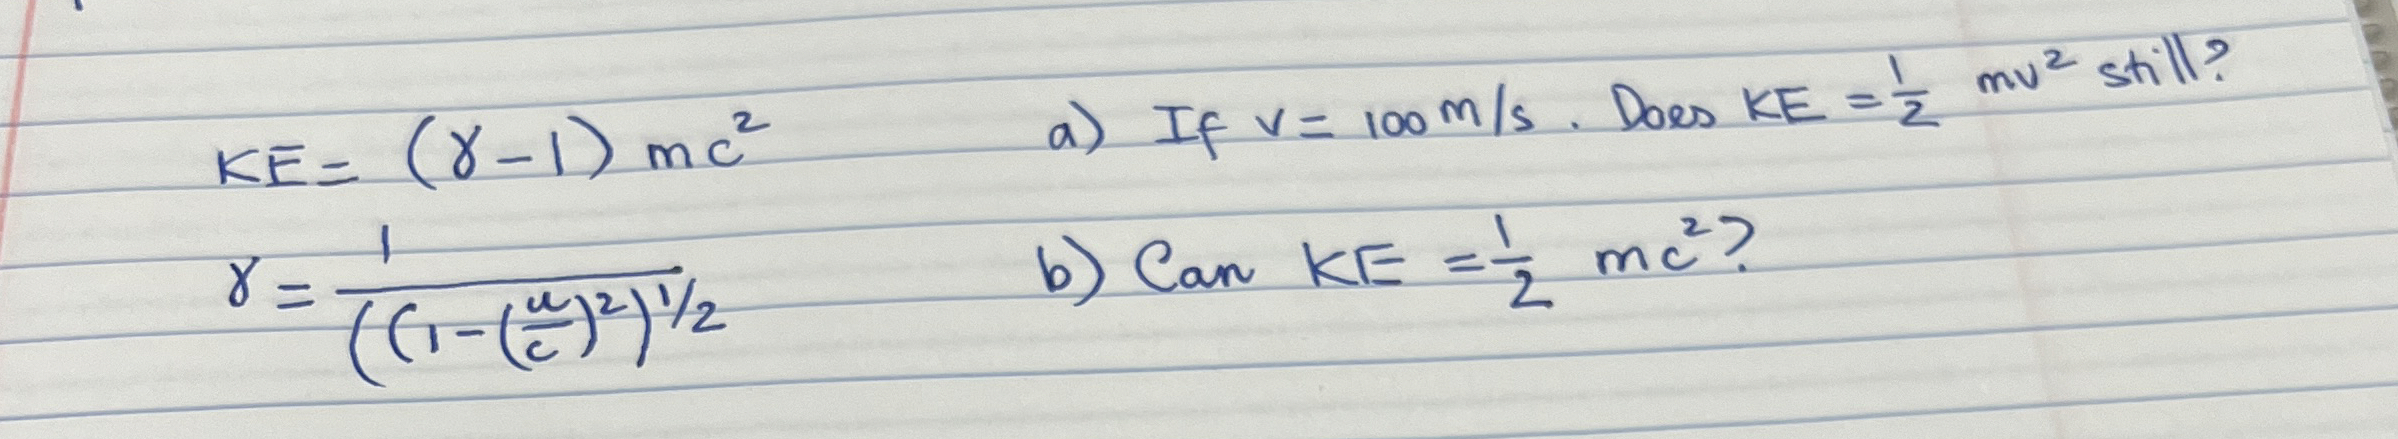 KE = (γ-1) mc²
γ = 1/((1-(u/c)²)^1/2
a) If v = 100 m/s. Does KE = 1/2 mv² still?
b) Can KE = 1/2 mc²?